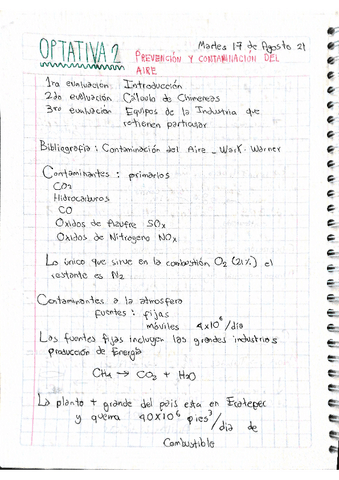 OPTATIVA 2
Martes 17 de Agosto 21
PREVENCIÓN Y CONTAMINACIÓN DEL
AIRE
1ra evaluación Introducción
2da evaluación Cálculo de Chimeneas
3ra evaluación Equipos de la Industria que
retienen particular
Bibliografia: Contaminación del Aire _ Wark. Warner
Contaminantes: primarios
CO2
Hidrocarburos
CO
Oxidos de Azufre SOx
Oxidos de Nitrogeno NOx
Lo único que sirve en la combustión O2 (21%) el
restante es N2
Contaminantes a la atmosfera
fuentes: fijas
móviles 4x10⁶/dia
Las fuentes fijas incluyen las grandes industrias
producción de Energía
CH4 → CO2 + H2O
La planta + grande del país esta en Ecatepec
y quema 40x10⁶ pies³/dia de
Combustible